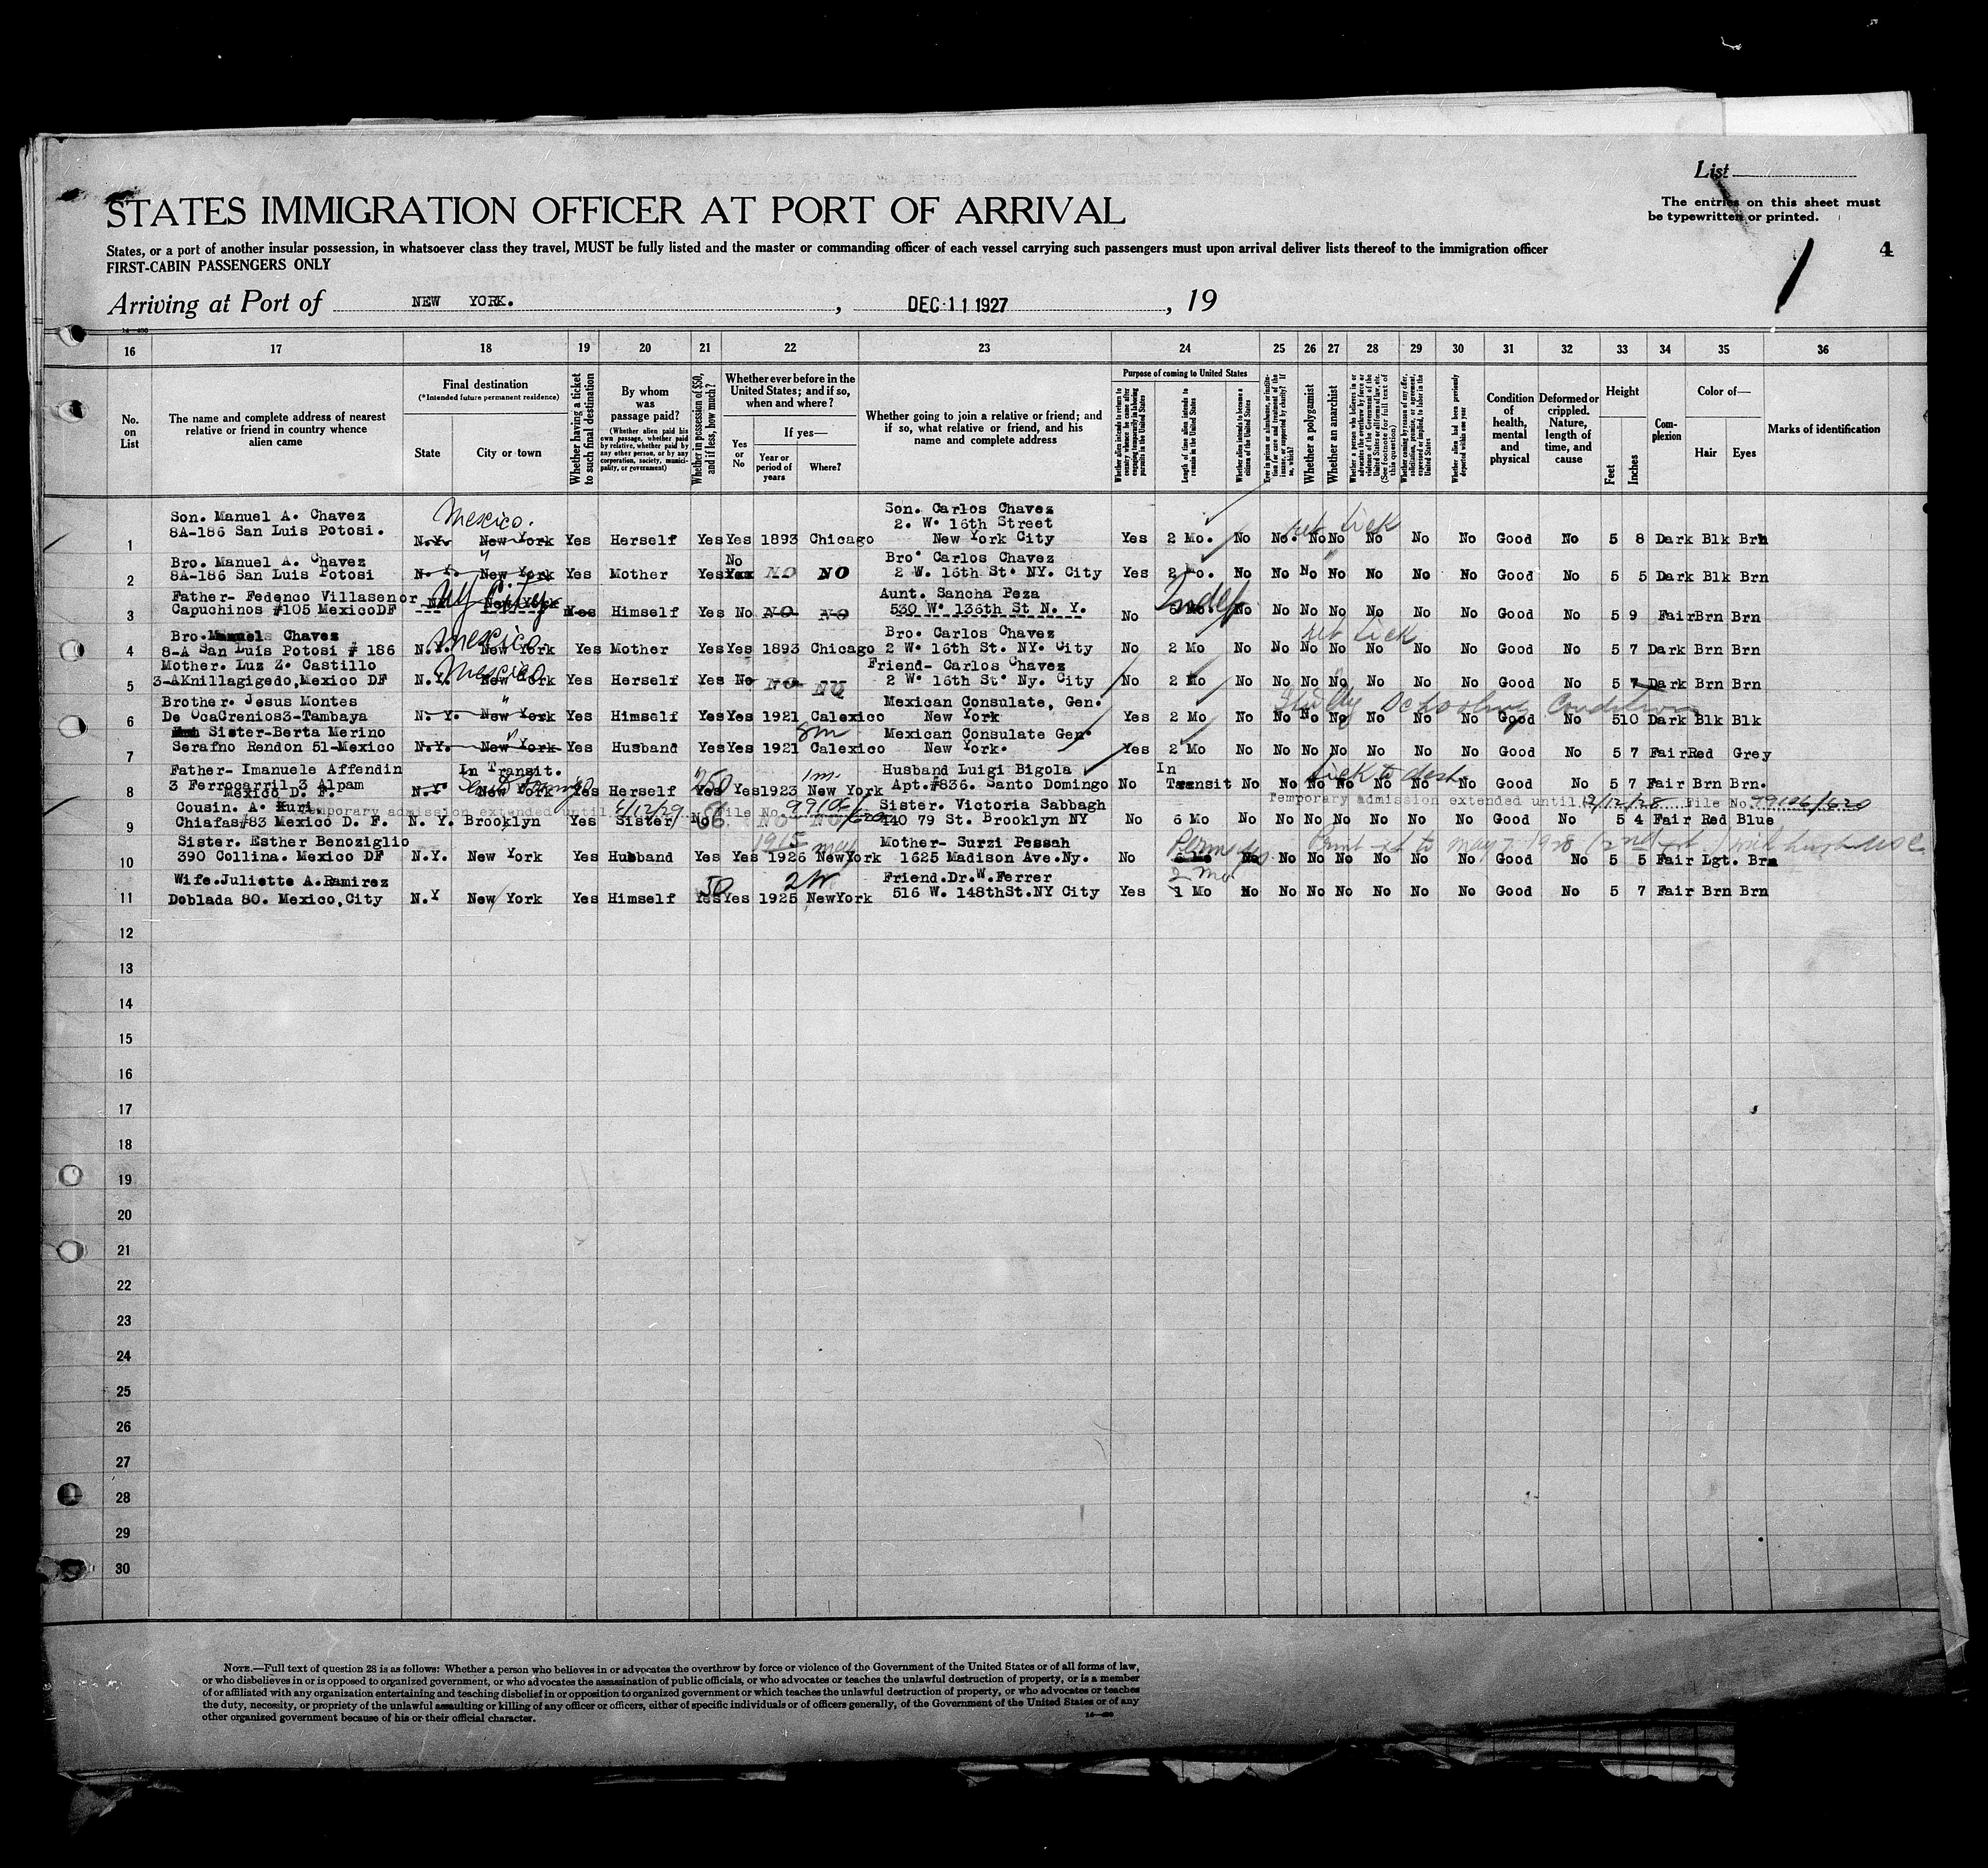 List
The entries on this sheet must
be typewritten or printed.
STATES IMMIGRATION OFFICER AT PORT OF ARRIVAL
4
States, or a port of another insular possession, in whatsoever class they travel, MUST be fully listed and the master or commanding officer of each vessel carrying such passengers must upon arrival deliver lists thereof to the immigration officer
FIRST-CABIN PASSENGERS ONLY
1
Arriving at Port of NEW YORK. , DEC 11 1927 , 19
16 17 18 19 20 21 22 23 24 25 26 27 28 29 30 31 32 33 34 35 36
No. on List
The name and complete address of nearest relative or friend in country whence alien came
Final destination
(*Intended future permanent residence)
State
City or town
Whether having a ticket to such final destination
By whom was passage paid?
(Whether alien paid his own passage, whether paid by relative, whether paid by any other person, or by any corporation, society, municipality, or government)
Whether in possession of $50, and if less, how much?
Whether ever before in the United States; and if so, when and where?
Yes or No
If yes—
Year or period of years
Where?
Whether going to join a relative or friend; and if so, what relative or friend, and his name and complete address
Purpose of coming to United States
Length of time alien intends to remain in the United States
Whether alien intends to become a citizen of the United States
Whether a polygamist
Whether an anarchist
Condition of health, mental and physical
Deformed or crippled. Nature, length of time, and cause
Height
Feet
Inches
Complexion
Color of—
Hair
Eyes
Marks of identification
Son. Manuel A. Chavez Mexico. Son. Carlos Chavez
8A-186 San Luis Potosi. 2. W. 16th Street
1 N.Y. New York Yes Herself Yes Yes 1893 Chicago New York City Yes 2 Mo. No No. No No No No No Good No 5 8 Dark Blk Brn
ret tick
Bro. Manuel A. Chavez " No Bro. Carlos Chavez
2 8A-186 San Luis Potosi N. Y. New York Yes Mother Yes Yes NO NO 2 W. 16th St. NY. City Yes 2 Mo. No No No No No No No Good No 5 5 Dark Blk Brn
Father- Fedenco Villasenor NY City Aunt. Sancha Peza Indef
3 Capuchinos #105 MexicoDF NY New York Yes Himself Yes No NO NO 530 W. 136th St N. Y. No 6 Mo. No No No No No No No Good No 5 9 Fair Brn Brn
Bro. Manuel Chavez Mexico Bro. Carlos Chavez ret tick
4 8-A San Luis Potosi # 186 N.Y. New York Yes Mother Yes Yes 1893 Chicago 2 W. 16th St. NY. City No 2 Mo No No No No No No No Good No 5 7 Dark Brn Brn
Mother. Luz Z. Castillo Mexico Friend- Carlos Chavez
5 3-AKnillagigedo,Mexico DF N.Y. New York Yes Herself Yes No NO NO 2 W. 16th St. Ny. City No 2 Mo No No No No No No No Good No 5 7 Dark Brn Brn
Brother. Jesus Montes " Mexican Consulate, Gen.
6 De OcaCrenios3-Tambaya N. Y. New York Yes Himself Yes Yes 1921 Calexico New York Yes 2 Mo No No No No No No No Good No 5 10 Dark Blk Blk
Sister-Berta Merino " Mexican Consulate Gen.
7 Serafno Rendon 51-Mexico N.Y. New York Yes Husband Yes Yes 1921 Calexico New York. Yes 2 Mo No No No No No No No Good No 5 7 Fair Red Grey
Father- Imanuele Affendin In Transit. 1m. Husband Luigi Bigola In tick to dest
8 3 Ferrocarril 3 Alpam N.Y New York Yes Herself Yes Yes 1923 New York Apt.#836. Santo Domingo No Transit No No No No No No No Good No 5 7 Fair Brn Brn.
Mexico D. F.
Cousin. A. Kuri Sister. Victoria Sabbagh
Temporary admission extended until 6/12/29 File No. 99106/620
Temporary admission extended until 12/12/28 File No. 99106/620
9 Chiafas#83 Mexico D. F. N. Y. Brooklyn Yes Sister No 66 NO NO 440 79 St. Brooklyn NY No 6 Mo No No No No No No No Good No 5 4 Fair Red Blue
Sister. Esther Benoziglio 1915 Mother- Surzi Pessah
10 390 Collina. Mexico DF N.Y. New York Yes Husband Yes Yes 1926 NewYork 1625 Madison Ave.Ny. No 6 Mo No No No No No No No Good No 5 5 Fair Lgt. Brn
Wife.Juliette A.Ramirez 50 2W Friend.Dr.W.Ferrer 2 Mo
11 Doblada 80. Mexico,City N.Y New York Yes Himself Yes Yes 1925 NewYork 516 W. 148thSt.NY City Yes 1 Mo No No No No No No No Good No 5 7 Fair Brn Brn
12
13
14
15
16
17
18
19
20
21
22
23
24
25
26
27
28
29
30
NOTE.—Full text of question 28 is as follows: Whether a person who believes in or advocates the overthrow by force or violence of the Government of the United States or of all forms of law,
or who disbelieves in or is opposed to organized government, or who advocates the assassination of public officials, or who advocates or teaches the unlawful destruction of property, or is a member
of or affiliated with any organization entertaining and teaching disbelief in or opposition to organized government or which teaches the unlawful destruction of property, or who advocates or teaches
the duty, necessity, or propriety of the unlawful assaulting or killing of any officer or officers, either of specific individuals or of officers generally, of the Government of the United States or of any
other organized government because of his or their official character.